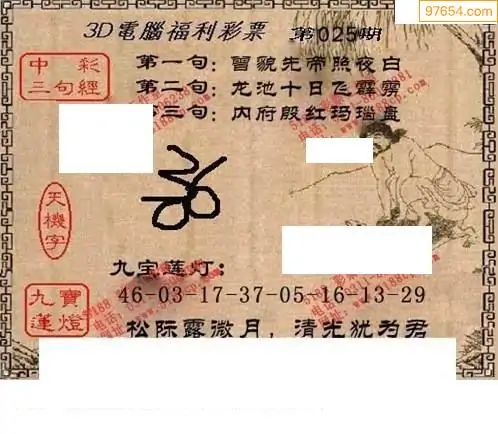 97654.com
3D電腦福利彩票 第025期
中彩
三句經
第一句：曾貌先帝照夜白
第二句：龙池十日飞霹雳
第三句：内府殷红玛瑙盘
天機字
九宝莲灯：
九寶
蓮燈
46-03-17-37-05-16-13-29
松际露微月，清光犹为君